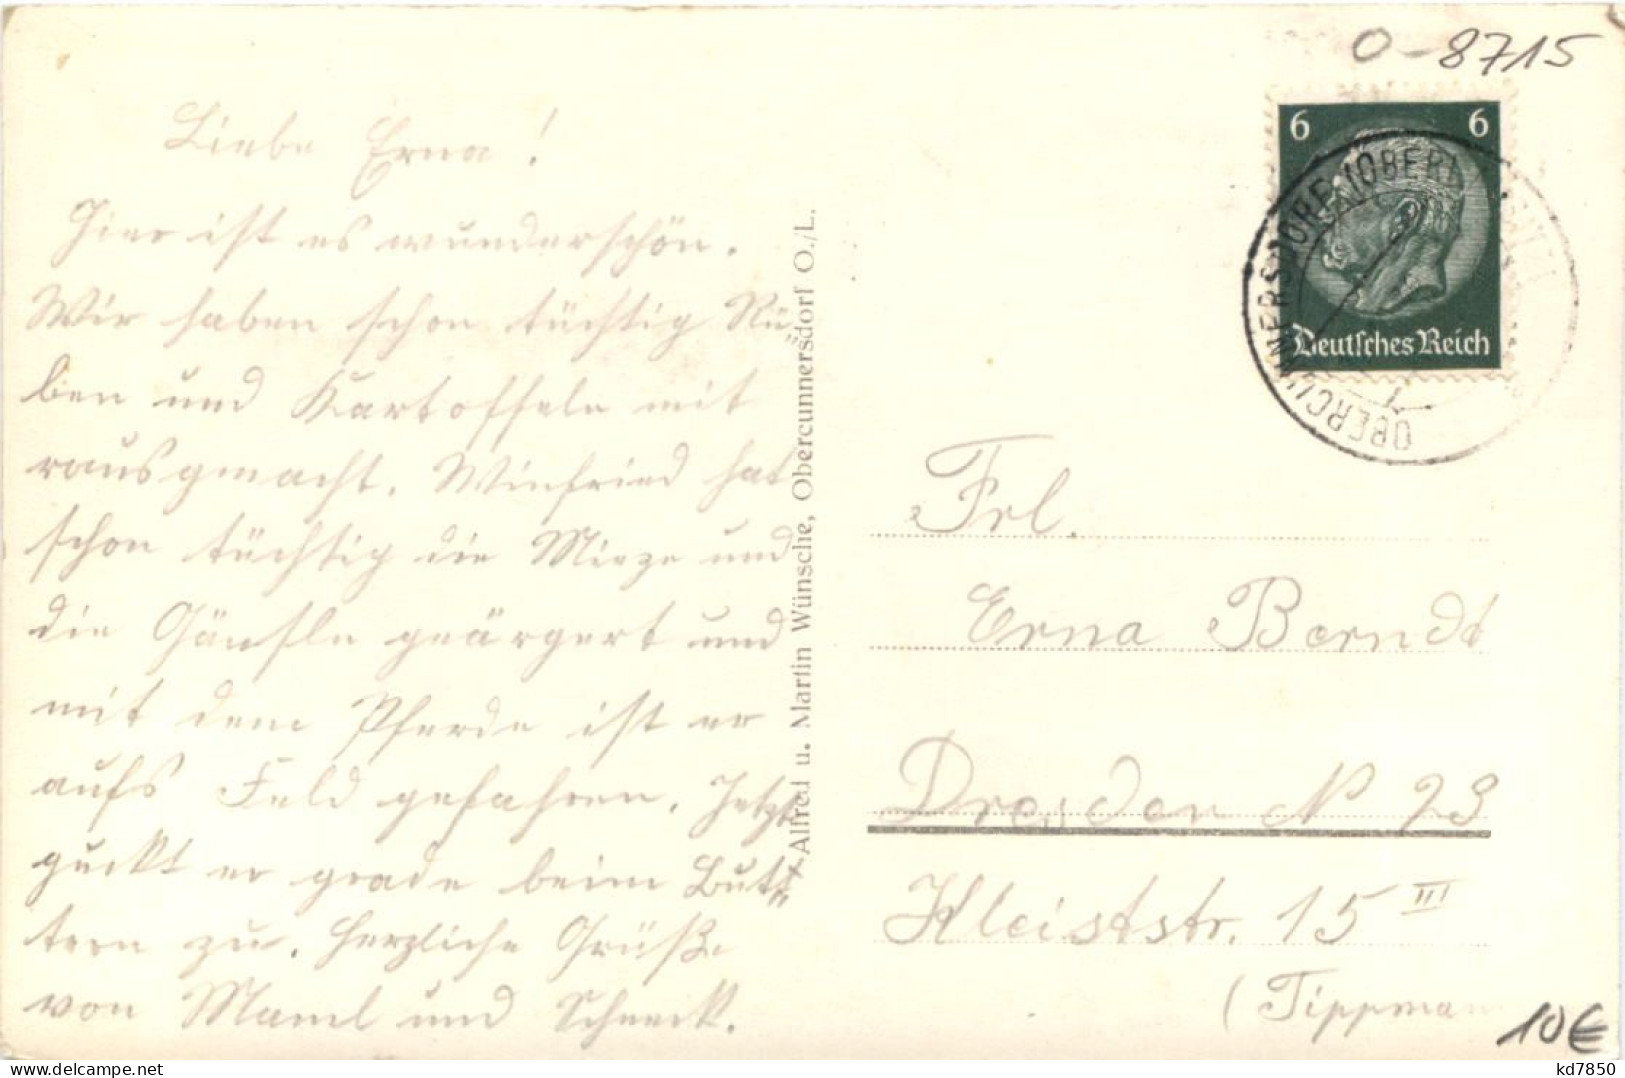 O-8715
Liebe Erna!
Hier ist es wunderschön.
Wir haben schon tüchtig Rü„
ben und Kartoffeln mit
rausgmacht. Winfried hat
schon tüchtig die Mieze und
die Gänsln geärgert und
mit dem Pferde ist er
aufs Feld gefahren. Jetzt
guckt er grade beim Butt„
tern zu. Herzliche Grüße
von Maml und Schneck.
Alfred u. Martin Wünsche, Obercunnersdorf O./L.
6 6
Deutsches Reich
OBERCUNNERSDORF (OBERLAUSITZ)
Frl.
Erna Berndt
Dresden N 23
Kleiststr. 15 III
(Tippman
10€
kd7850